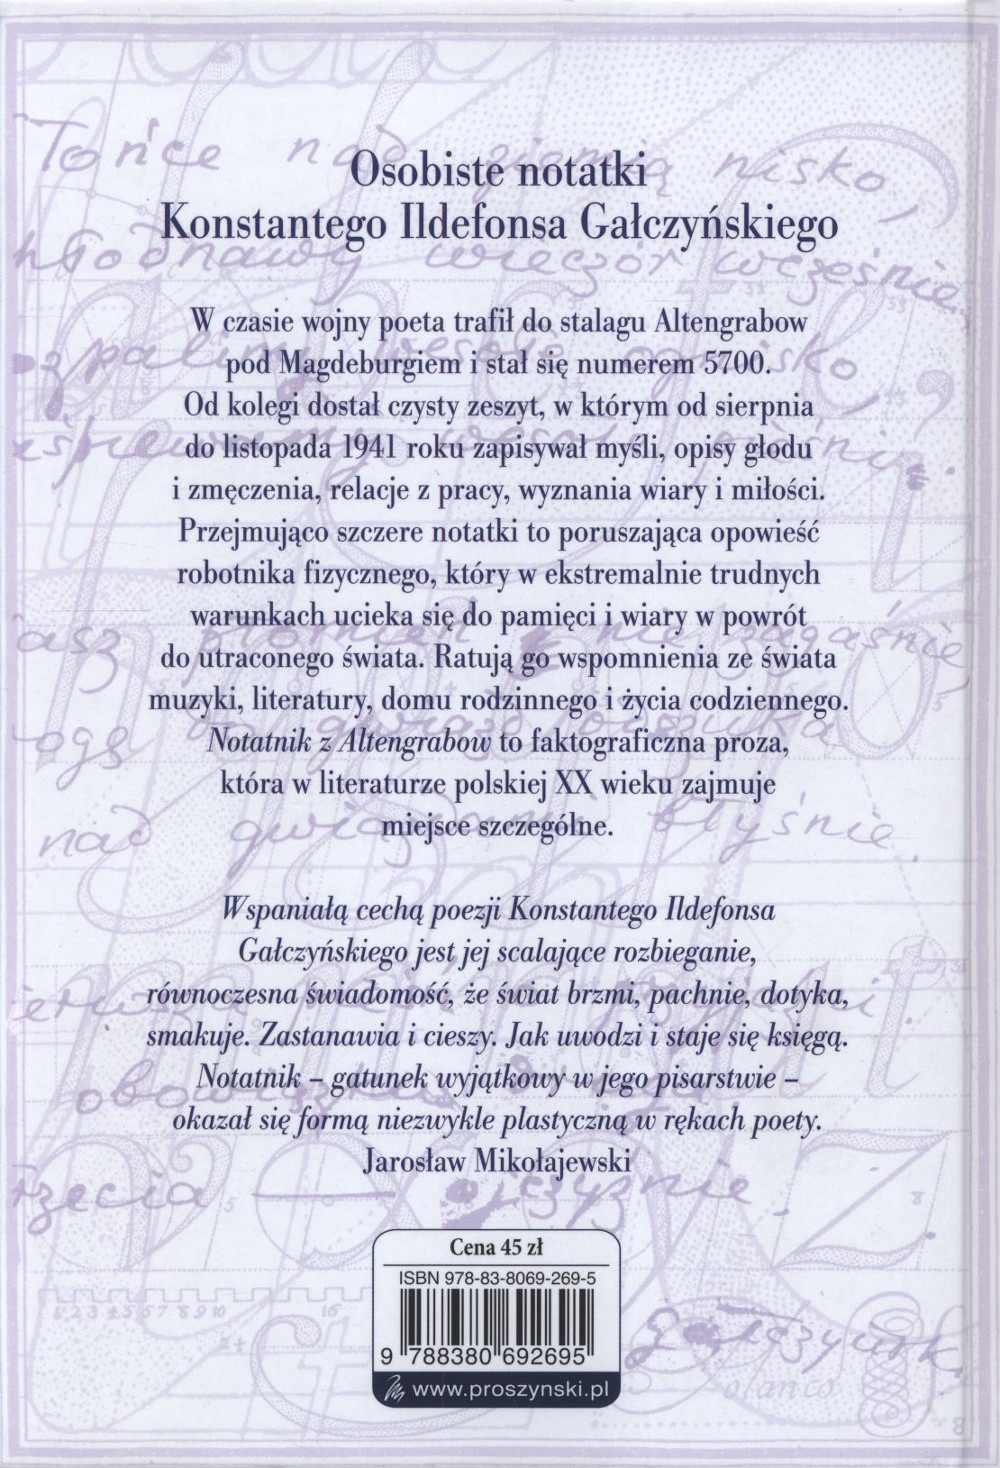 Osobiste notatki
Konstantego Ildefonsa Gałczyńskiego
W czasie wojny poeta trafił do stalagu Altengrabow
pod Magdeburgiem i stał się numerem 5700.
Od kolegi dostał czysty zeszyt, w którym od sierpnia
do listopada 1941 roku zapisywał myśli, opisy głodu
i zmęczenia, relacje z pracy, wyznania wiary i miłości.
Przejmująco szczere notatki to poruszająca opowieść
robotnika fizycznego, który w ekstremalnie trudnych
warunkach ucieka się do pamięci i wiary w powrót
do utraconego świata. Ratują go wspomnienia ze świata
muzyki, literatury, domu rodzinnego i życia codziennego.
Notatnik z Altengrabow to faktograficzna proza,
która w literaturze polskiej XX wieku zajmuje
miejsce szczególne.
Wspaniałą cechą poezji Konstantego Ildefonsa
Gałczyńskiego jest jej scalające rozbieganie,
równoczesna świadomość, że świat brzmi, pachnie, dotyka,
smakuje. Zastanawia i cieszy. Jak uwodzi i staje się księgą.
Notatnik – gatunek wyjątkowy w jego pisarstwie –
okazał się formą niezwykle plastyczną w rękach poety.
Jarosław Mikołajewski
Cena 45 zł
ISBN 978-83-8069-269-5
9 788380 692695
www.proszynski.pl